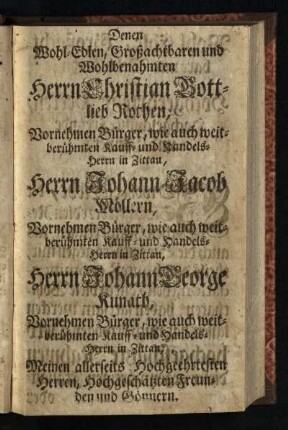 Denen
Wohl-Edlen, Großachtbaren und
Wohlbenahmten
Herrn Christian Gott-
lieb Rothen,
Vornehmen Bürger, wie auch weit-
berühmten Kauff- und Handels-
Herrn in Zittau,
Herrn Johann Jacob
Möllern,
Vornehmen Bürger, wie auch weit-
berühmten Kauff- und Handels-
Herrn in Zittau,
Herrn Johann George
Kunath,
Vornehmen Bürger, wie auch weit-
berühmten Kauff- und Handels-
Herrn in Zittau,
Meinen allerseits Hochgeehrtesten
Herren, Hochgeschätzten Freun-
den und Gönnern.